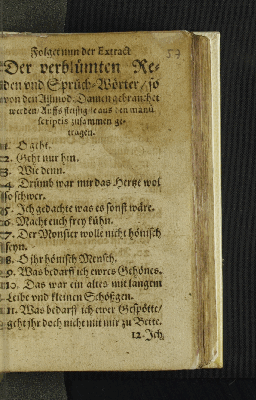 57
Folget nun der Extract
Der verblümten Re-
den vnd Sprüch-Wörter / so
von den Allmod. Damen gebrauchet
werden / Auffs fleissigste aus den manu
scriptis zusammen ge-
tragen.
1. O geht.
2. Geht nur hin.
3. Wie denn.
4. Drumb war mir das Hertze wol
so schwer.
5. Ich gedachte was es sonst wäre.
6. Macht euch frey kühn.
7. Der Monsier wolle nicht hönisch
seyn.
8. O ihr hönisch Mensch.
9. Was bedarff ich ewres Gehönes.
10. Das war ein altes mit langem
Leibe vnd kleinen Schößgen.
11. Was bedarff ich ewer Gespötte /
geht jhr doch nicht mit mir zu Bette.
12. Ich